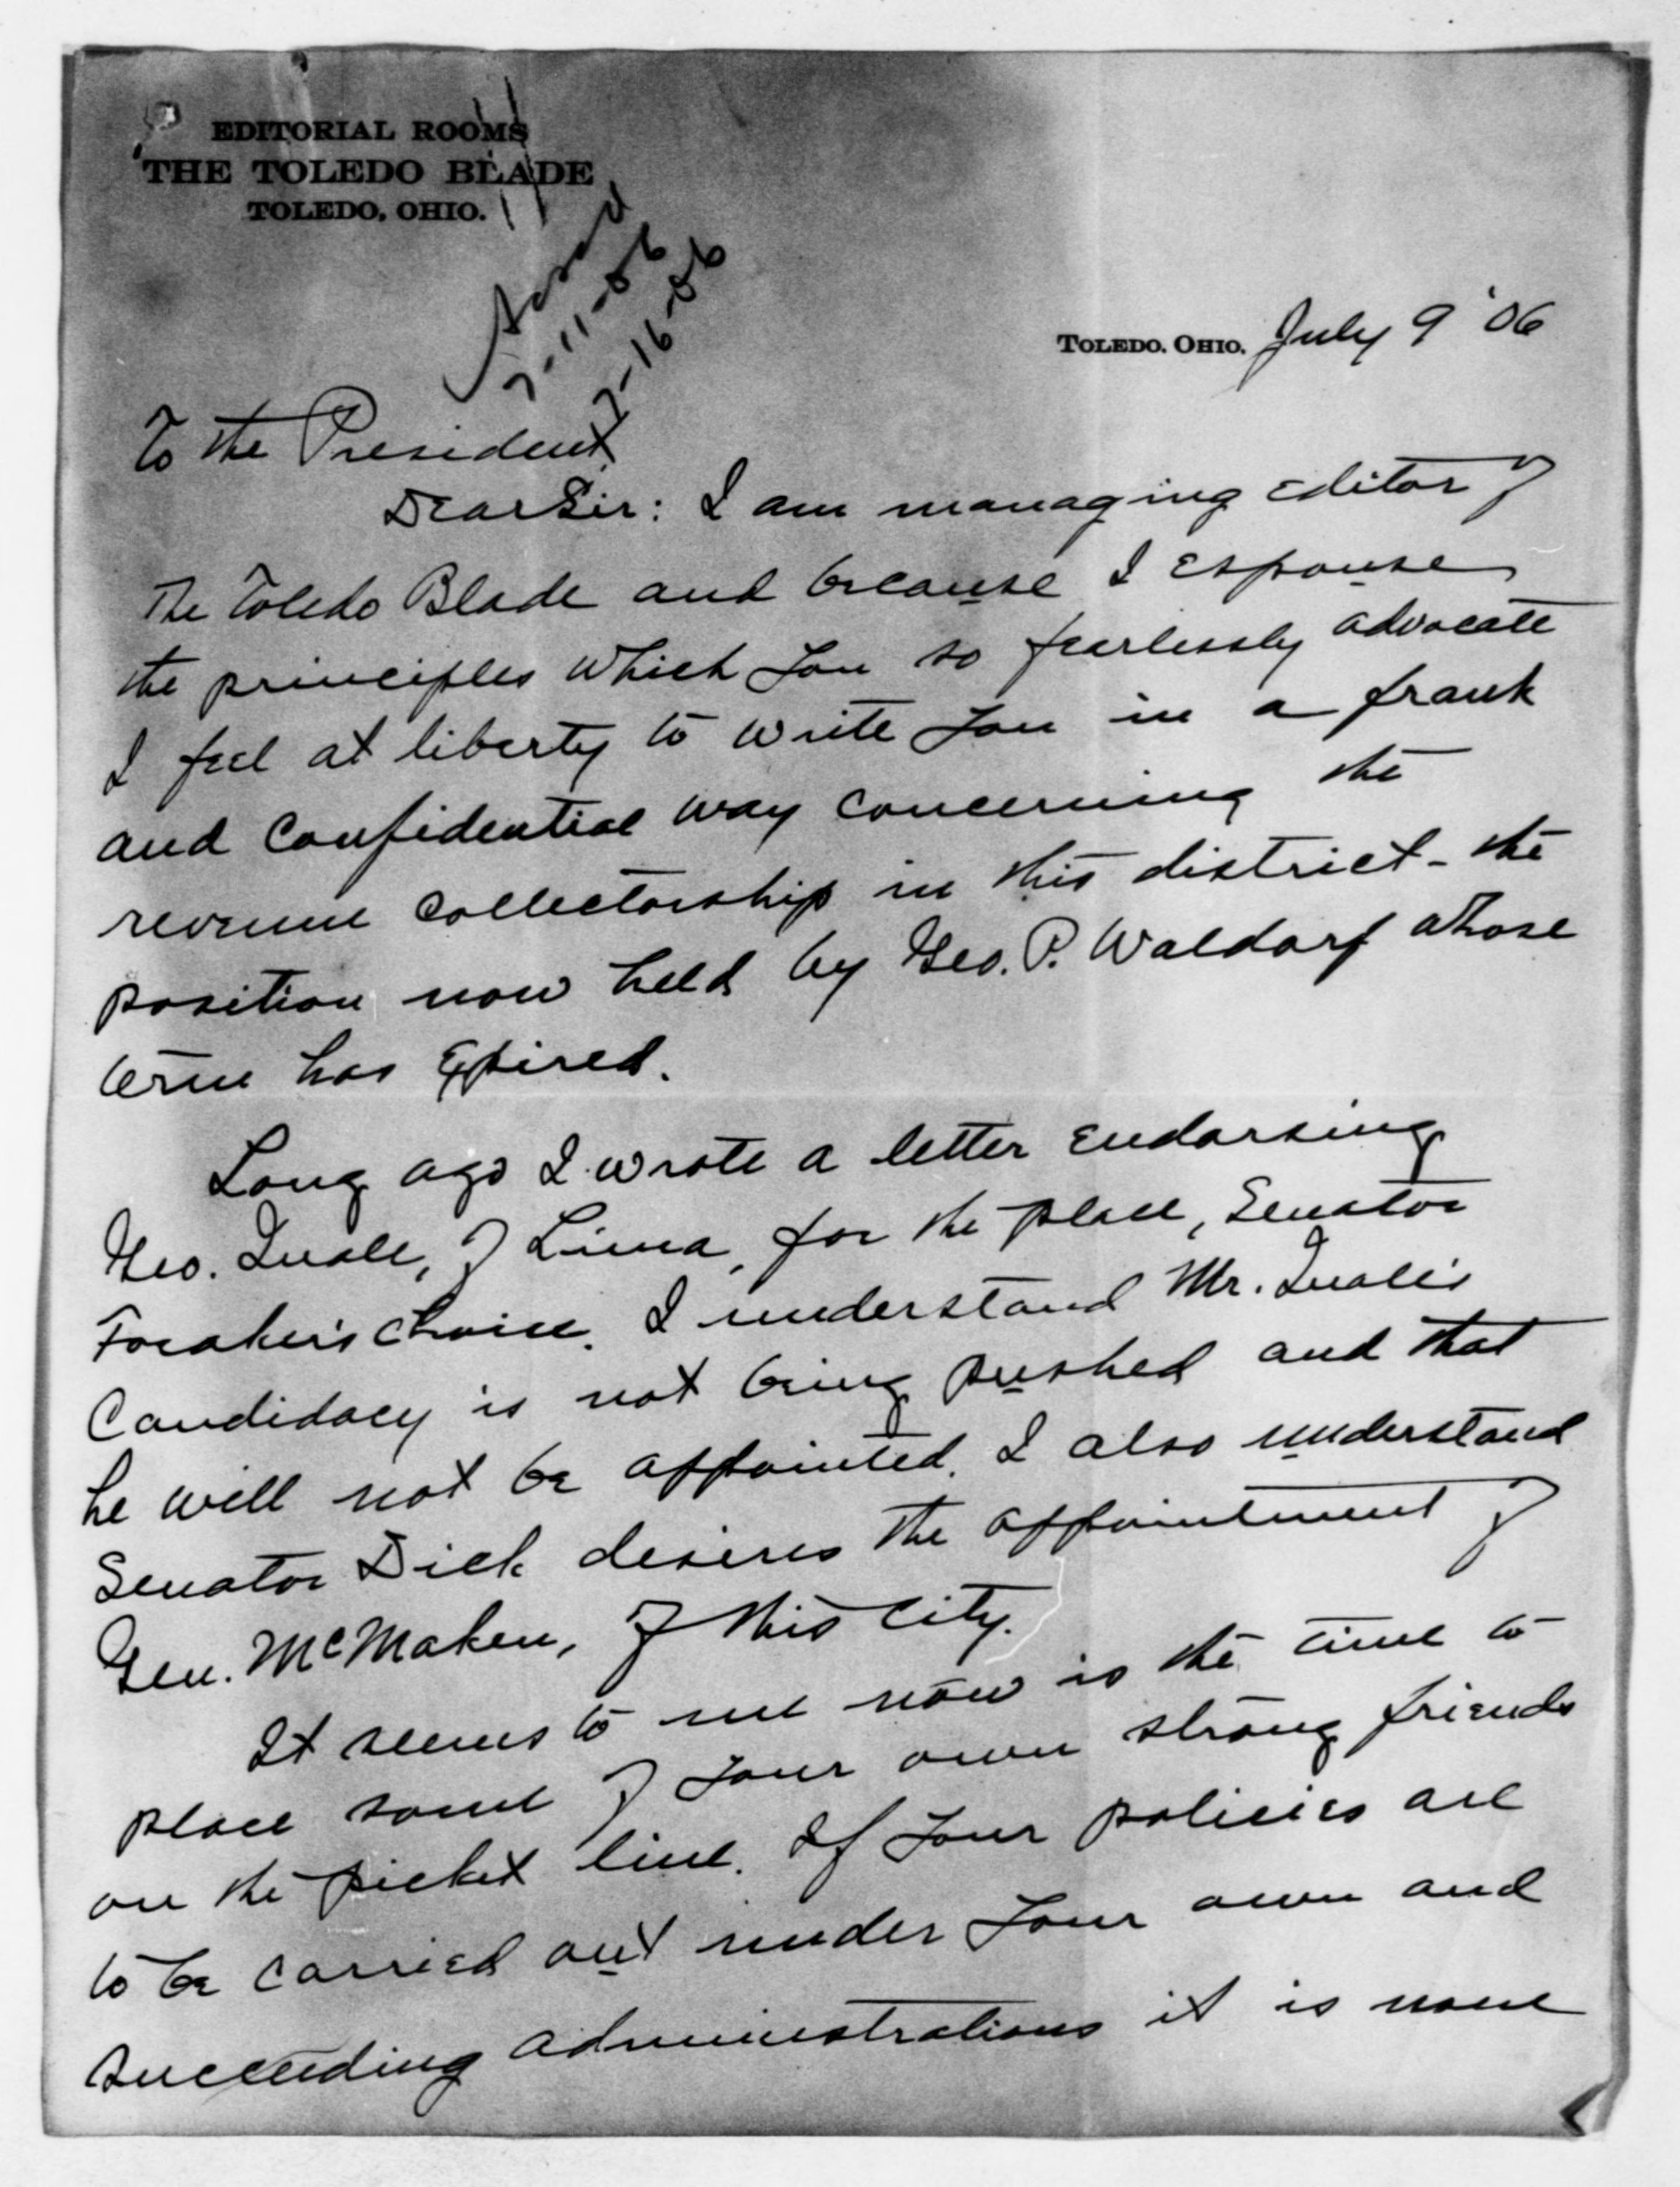 EDITORIAL ROOMS
THE TOLEDO BLADE
TOLEDO, OHIO.
7-11-06
7-16-06
TOLEDO, OHIO. July 9 '06
To the President
Dear Sir: I am managing editor of
The Toledo Blade and because I espouse
the principles which you so fearlessly advocate
I feel at liberty to write you in a frank
and confidential way concerning the
revenue collectorship in this district - the
position now held by Geo. P. Waldorf whose
term has expired.
Long ago I wrote a letter endorsing
Geo. Quale, of Lima, for the place, Senator
Foraker's choice. I understand Mr. Quale's
candidacy is not being pushed and that
he will not be appointed. I also understand
Senator Dick desires the appointment of
Gen. McMaken, of this city.
It seems to me now is the time to
place some of your own strong friends
on the picket line. If your policies are
to be carried out under your own and
succeeding administrations it is none